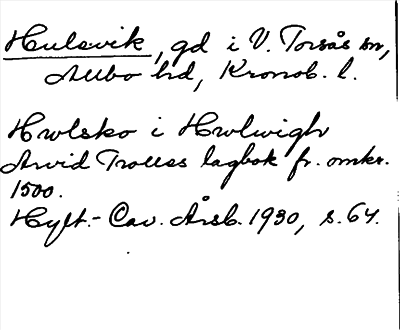 Hulsvik, gd i V. Torsås sn,
Allbo hd, Kronob. l.
Hwlsko i Hwlwigh
Arvid Trolles lagbok fr. omkr.
1500.
Hylt.-Cav. Årsb. 1930, s. 64.